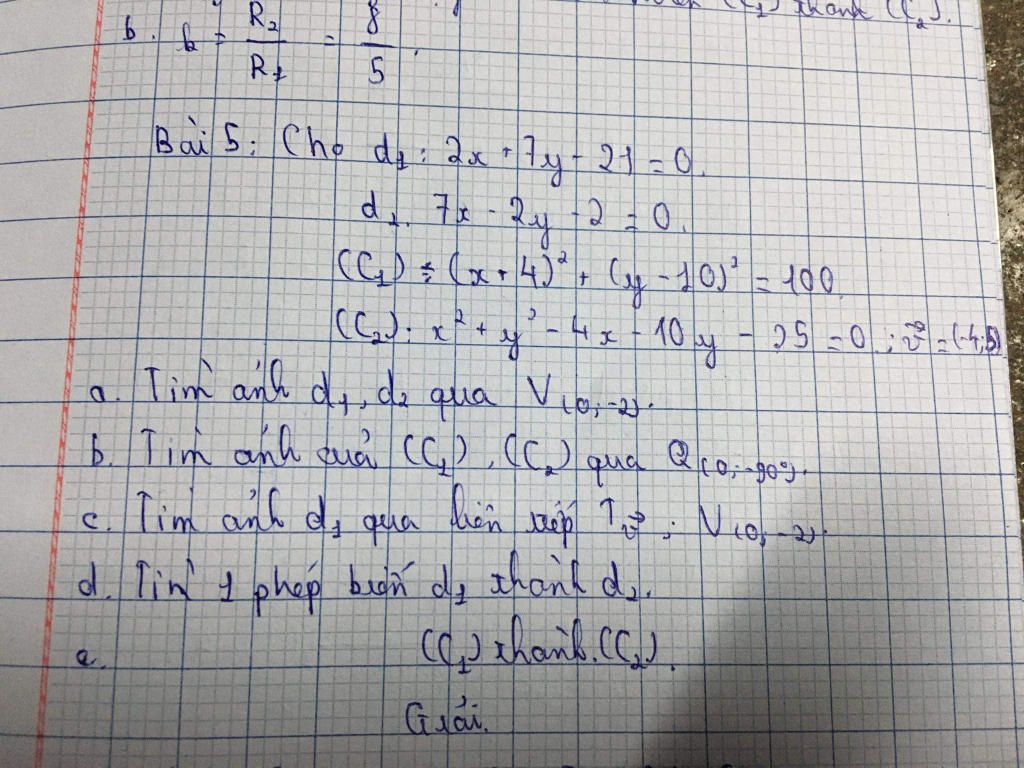 thành (C₂).
b. k = R₂/R₁ = 8/5.
Bài 5: Cho d₁: 2x + 7y - 21 = 0.
d₂. 7x - 2y - 2 = 0.
(C₁) : (x + 4)² + (y - 10)² = 100
(C₂): x² + y² - 4x - 10y - 25 = 0 ; v⃗ = (-4;5)
a. Tìm ảnh d₁, d₂ qua V(0; -2).
b. Tìm ảnh quả (C₁), (C₂) qua Q(0; -90°).
c. Tìm ảnh d₁ qua liên tiếp T v⃗ ; V(0; -2).
d. Tìm 1 phép biến d₁ thành d₂.
e. (C₁) thành (C₂).
Giải.